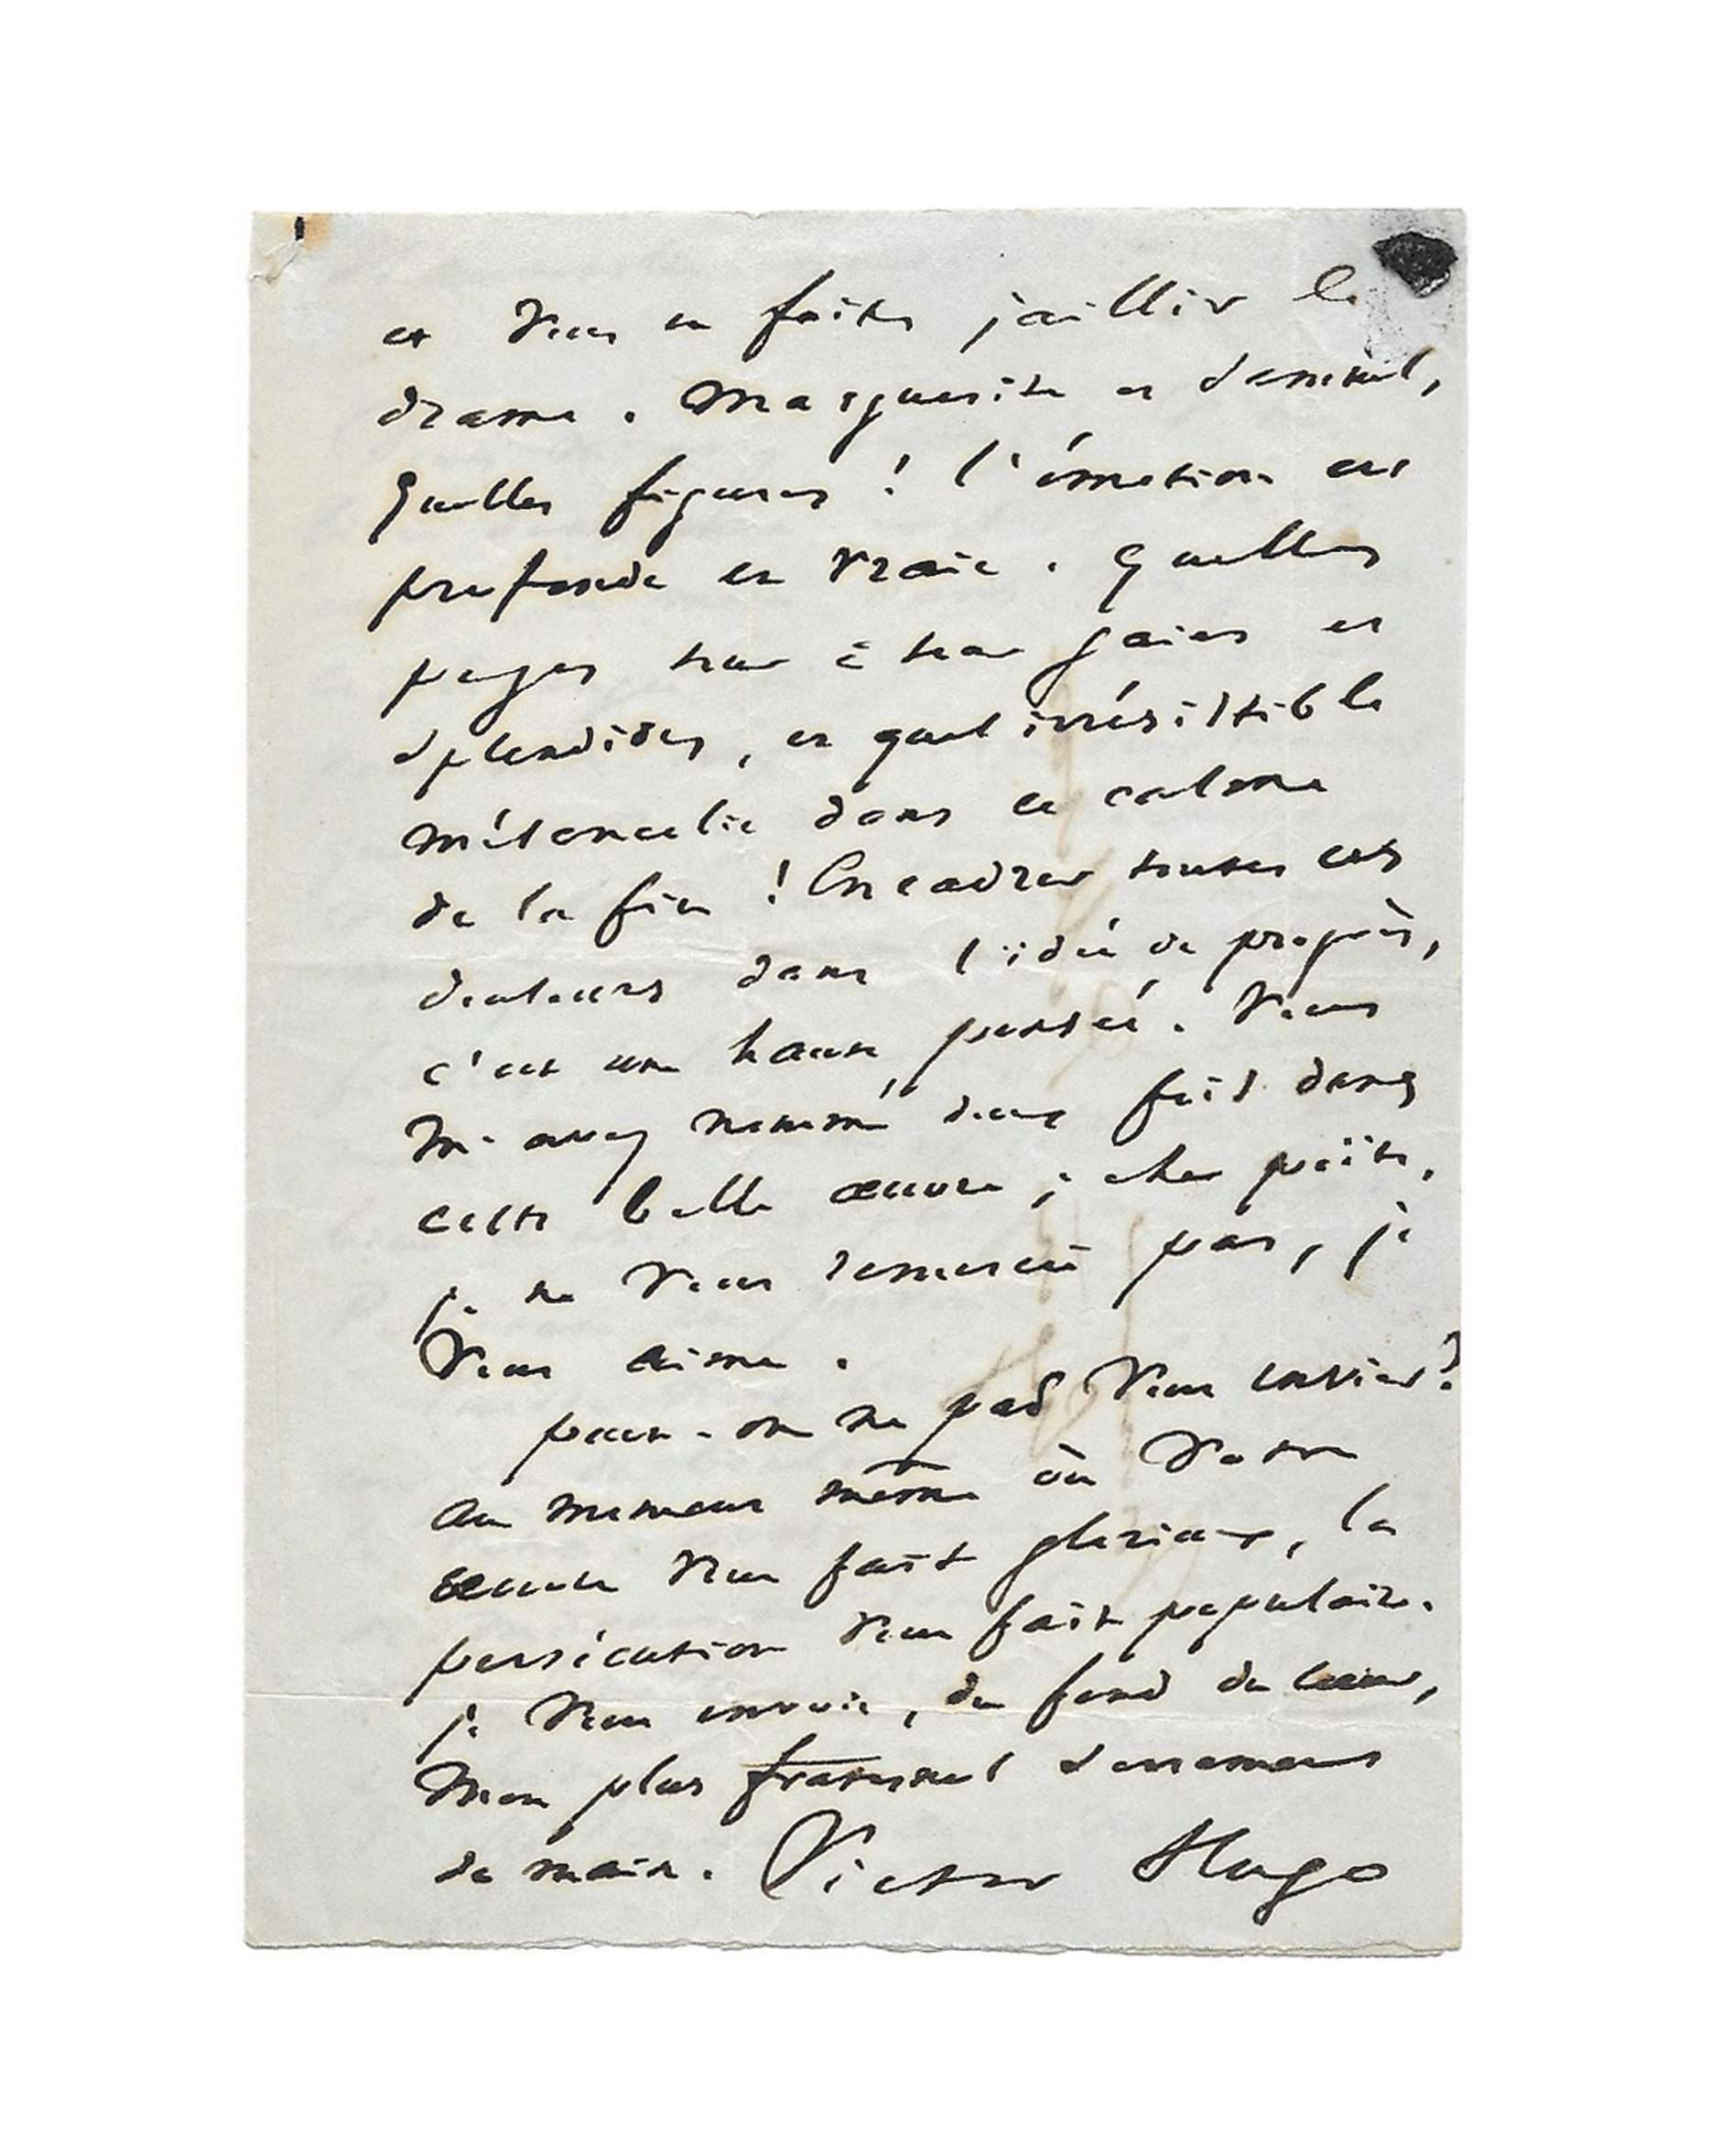 et vous en faites jaillir le
drame. Marguerite et Samuel,
quelles figures ! l'émotion est
profonde et vraie. Quelles
pages tour à tour gaies et
splendides, et quel irrésistible
mélancolie dans ce calme
de la fin ! Encadrer toutes ces
douleurs dans l'idée de progrès,
c'est une haute pensée. Vous
m'avez nommé deux fois dans
cette belle œuvre ; cher poëte,
je ne vous remercie pas, je
vous aime.
peut-on ne pas vous envier ?
Au moment même où votre
œuvre vous fait glorieux, la
persécution vous fait populaire.
je vous envoie, du fond du cœur,
mon plus fraternel serrement
de main. Victor Hugo